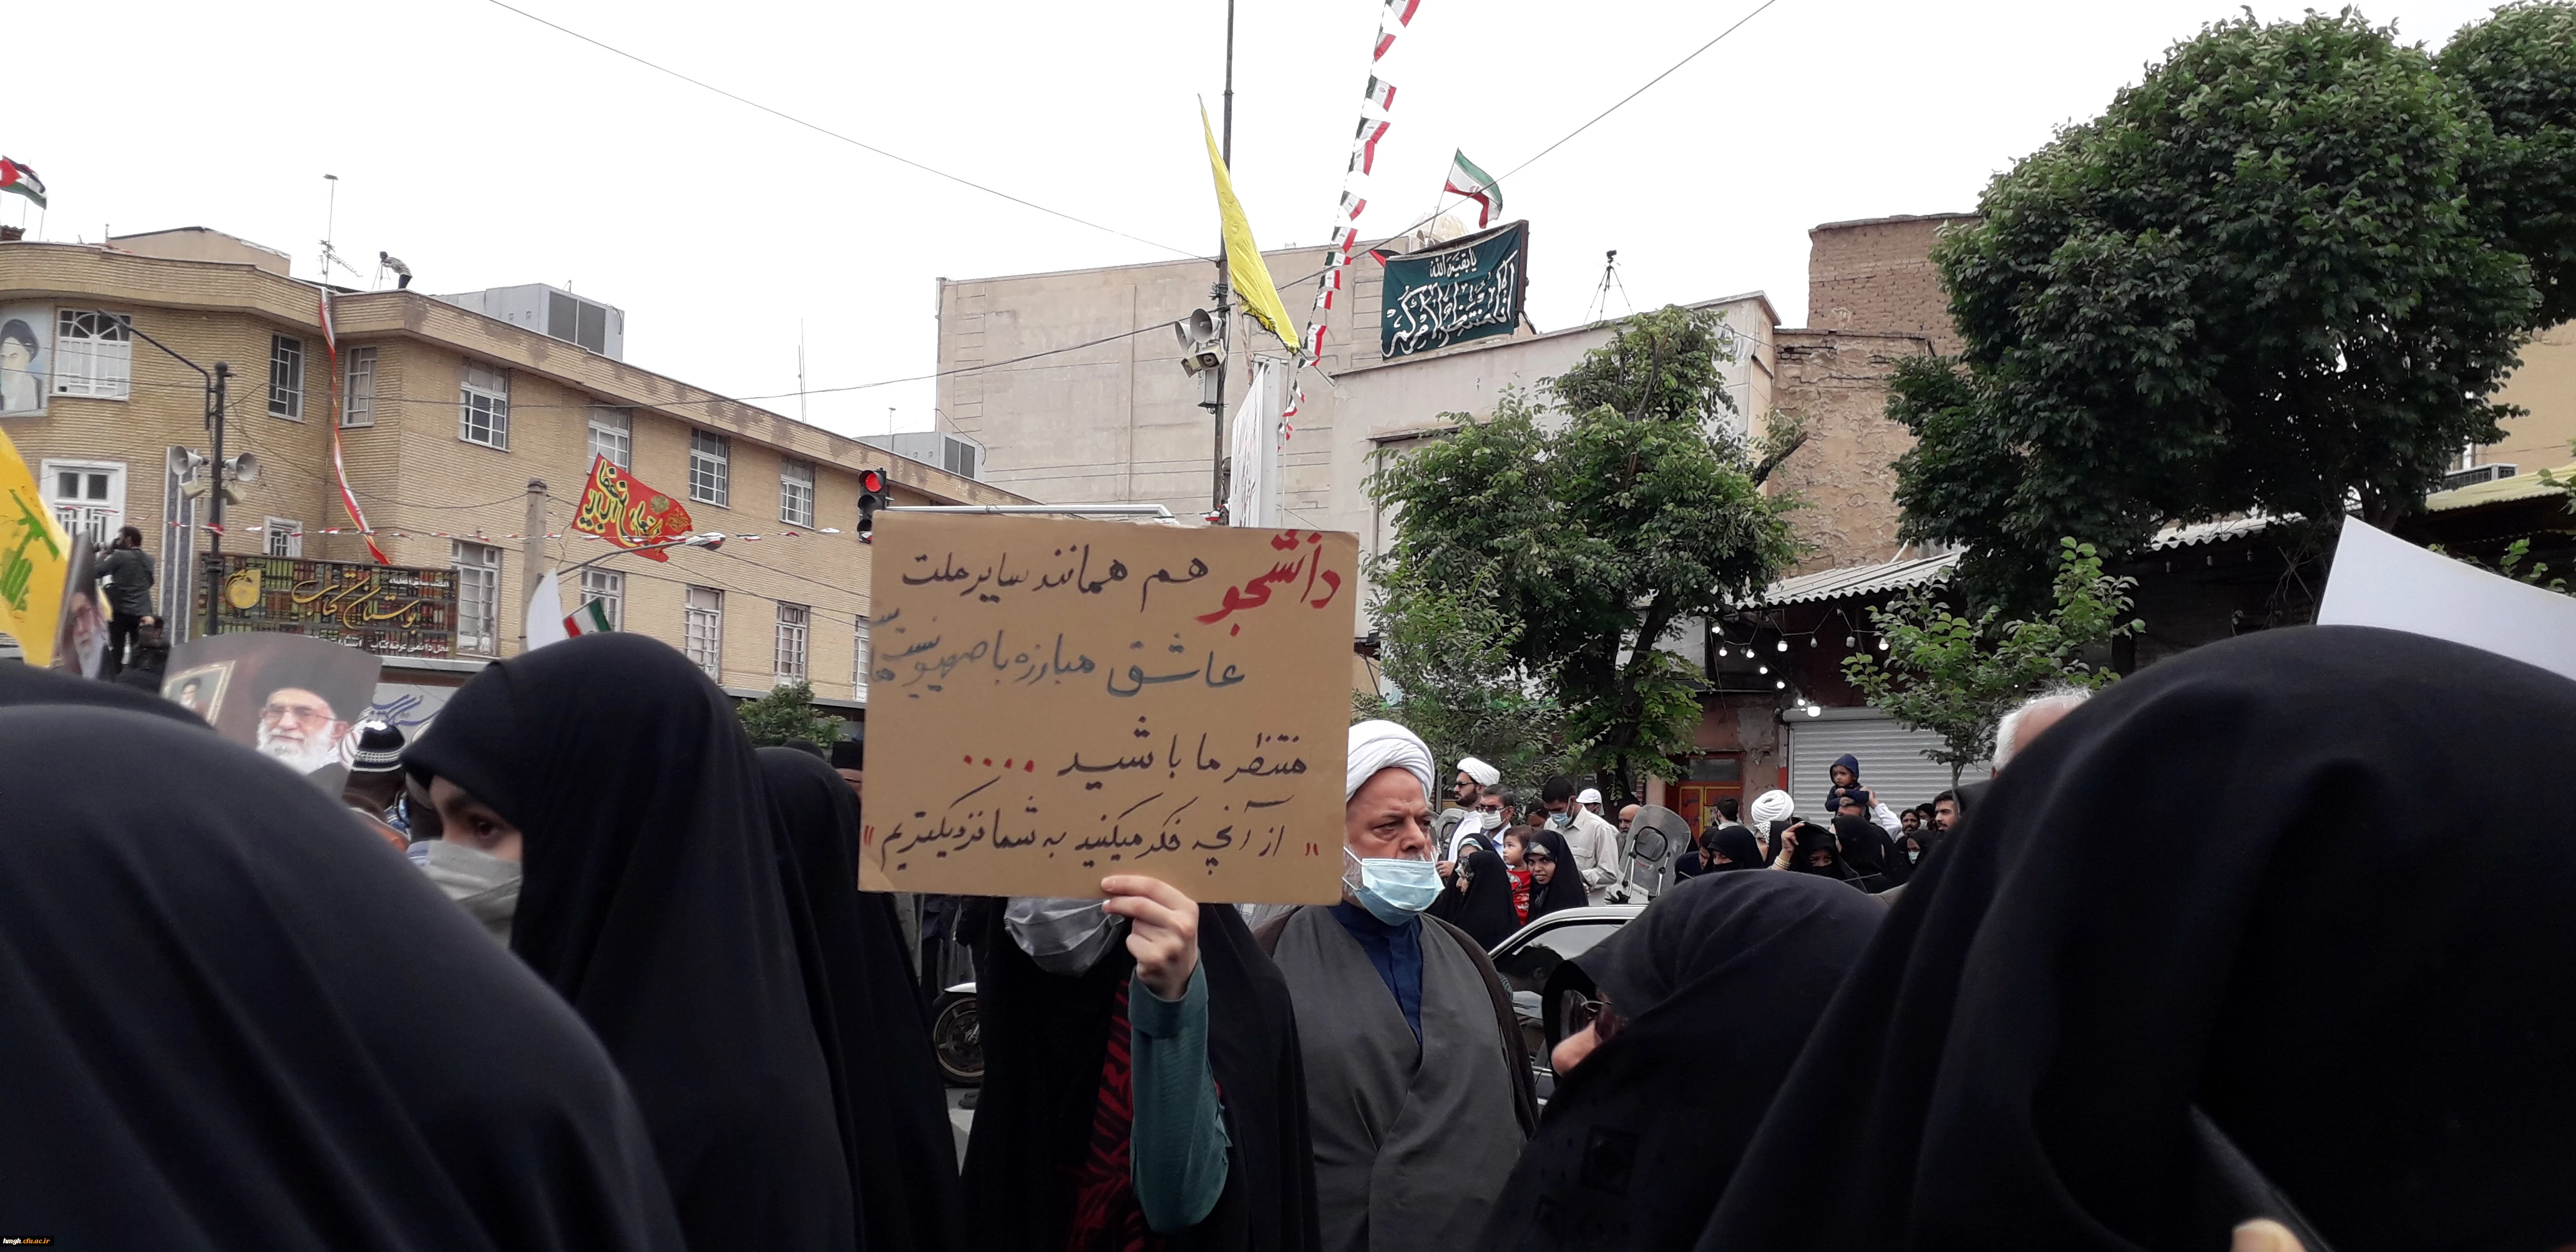 یا بقیة الله
بوستان کتاب
دانشجو هم همانند سایر ملت
عاشق مبارزه با صهیونیست
ها
منتظر ما باشید ....
"از آنچه فکر میکنید به شما نزدیکتریم"
hmgh.cfu.ac.ir